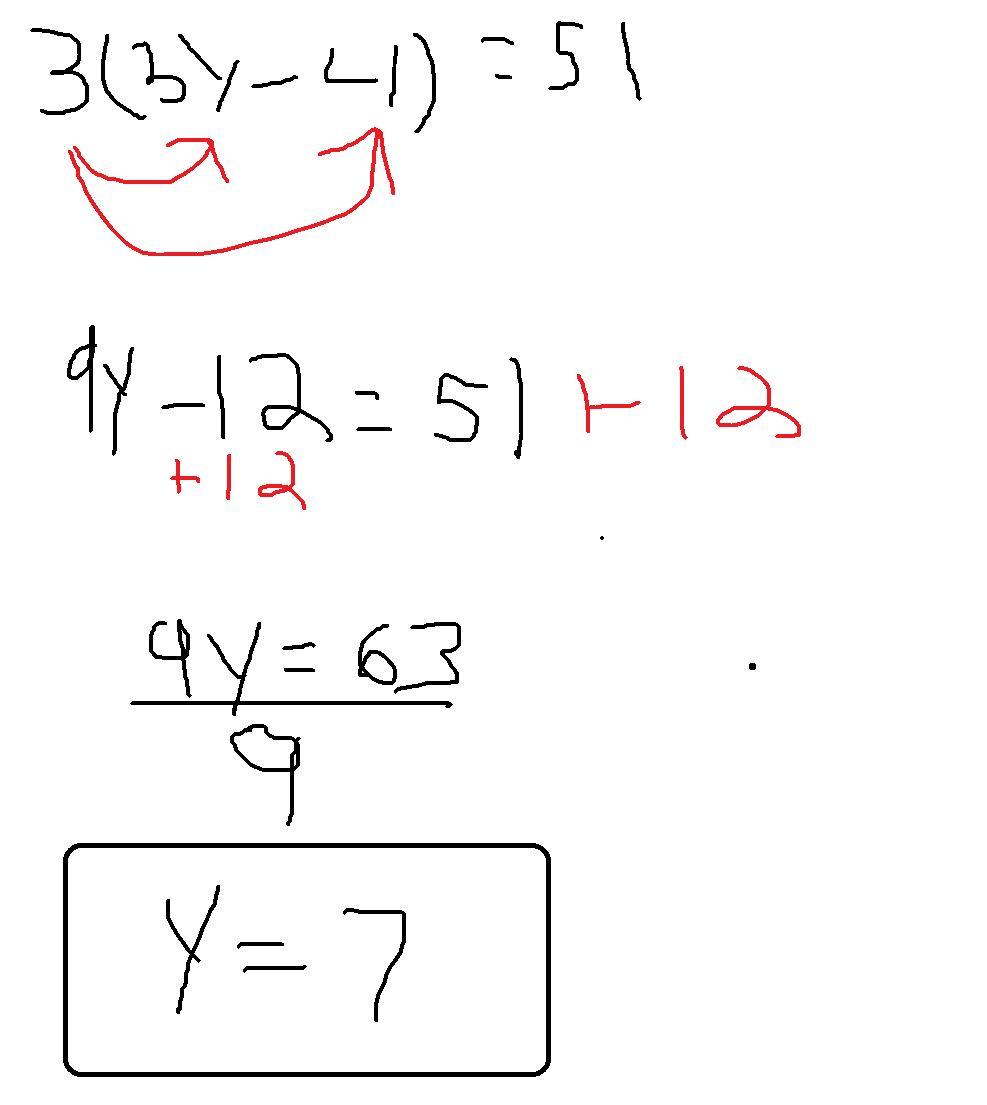 3(3y-4) = 51
9y - 12 = 51 + 12
+12
9y = 63
9
y = 7